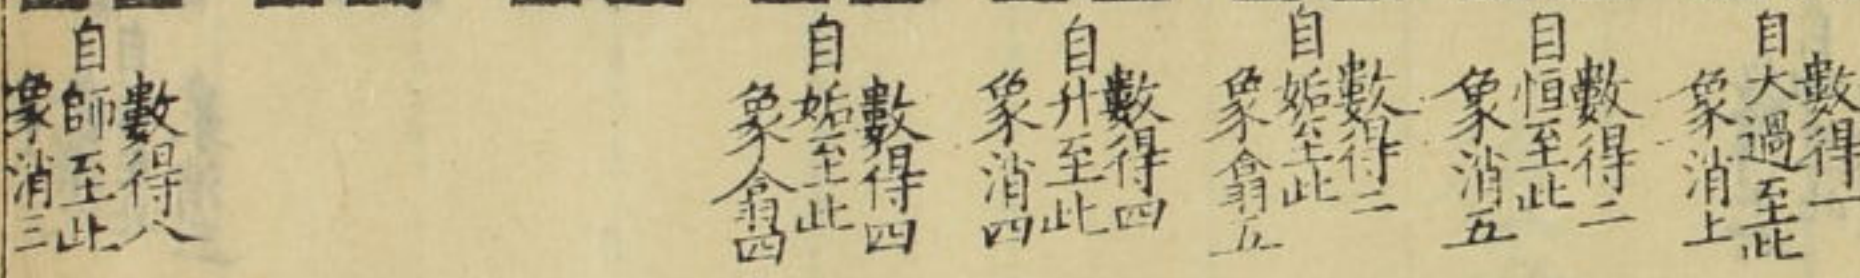 數得一
自大過至此
象消上
數得二
自恒至此
象消五
數得二
自姤至此
象翕五
數得四
自升至此
象消四
數得四
自姤至此
象翕四
數得八
自師至此
象消三